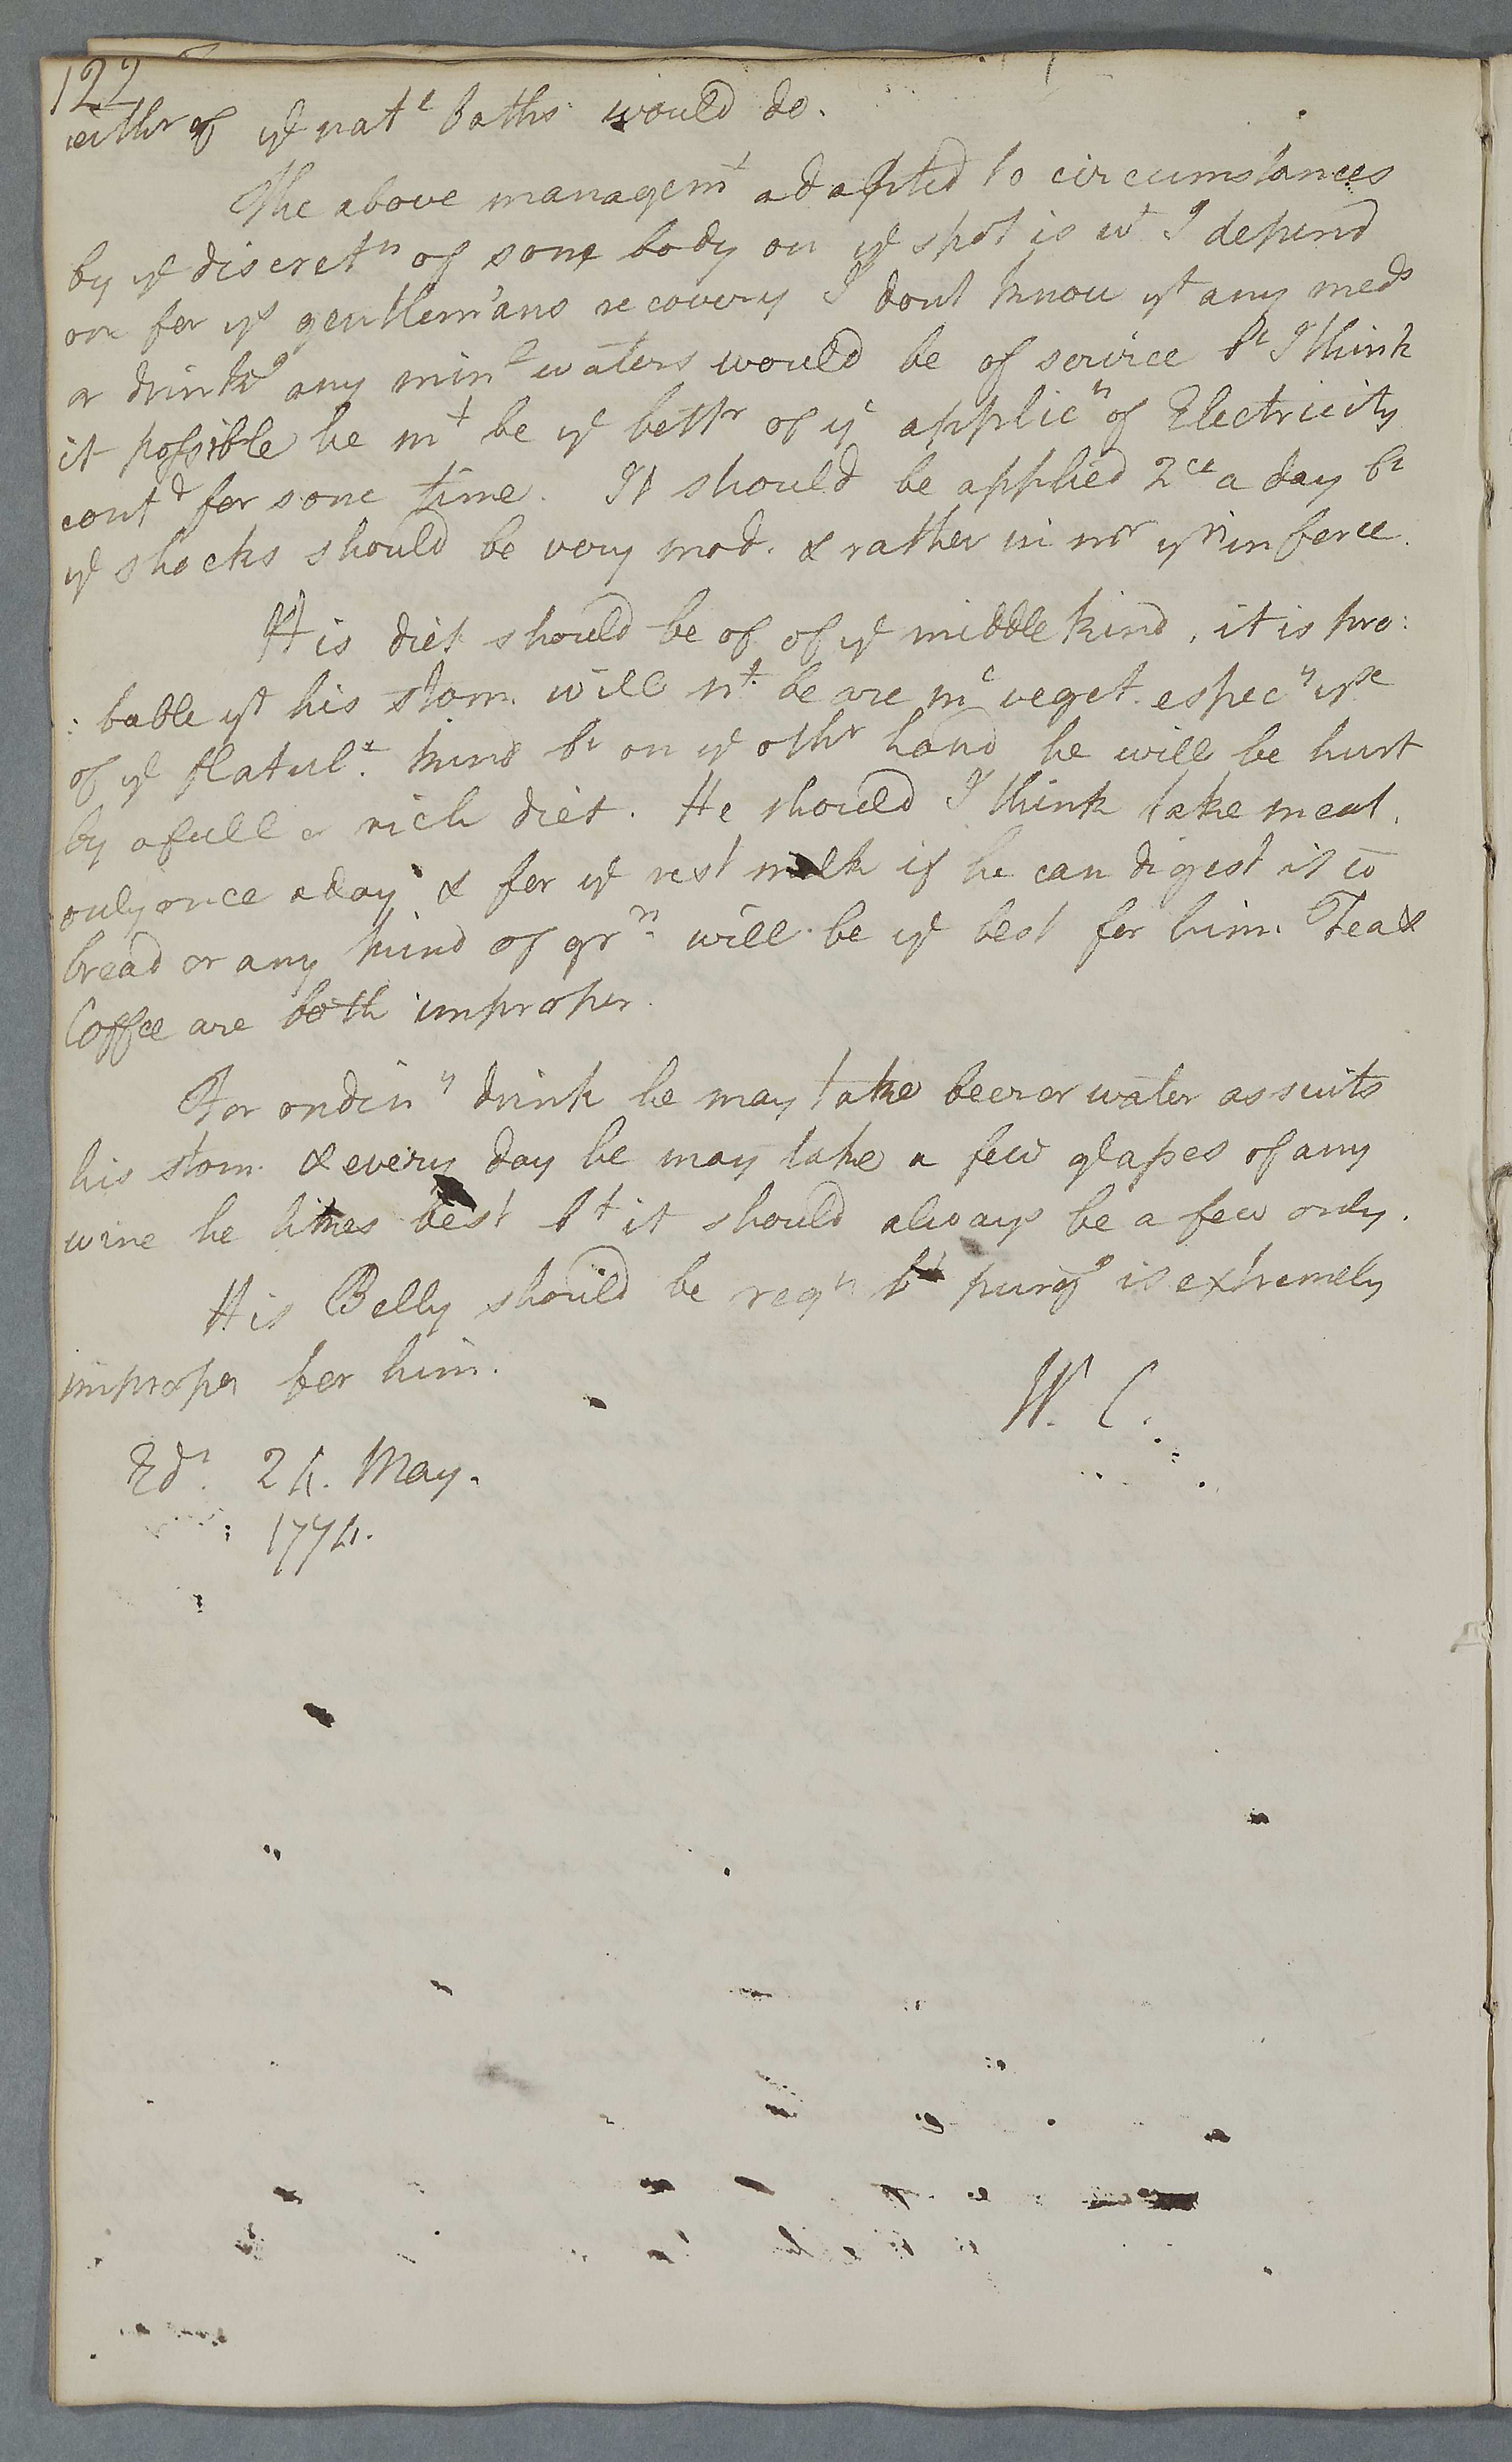 122
eithr of ye natl baths would do.
The above managemt adapted to circumstances
by ye discretn of some body on ye spot is wt I depend
on for ys gentlem'ans recovery I dont know yt any meds
or drinkg any minl waters would be of service bt I think
it possible he mt be ye bettr of ye applicn of Electricity
contd for some time. It should be applied 2ce a day bt
ye shocks should be very mod. & rather in nr yn in force.
His diet should be of of ye middle kind, it is pro:
: bable yt his stom. will nt. beare mc veget. especy yse
of ye flatult. kind bt on ye othr hand he will be hurt
by a full or rich diet. He should I think take meat.
only once a day & for ye rest milk if he can digest it w
bread or any kind of grn. will be ye best for him. Tea &
Coffee are both improper.
For ordiny drink he may take beer or water as suits
his stom. & every day he may take a few glasses of any
wine he likes best bt it should always be a few only.
His Belly should be regr bt purgg is extremely
improper for him.
W. C.
Edr. 24. May.
1774.